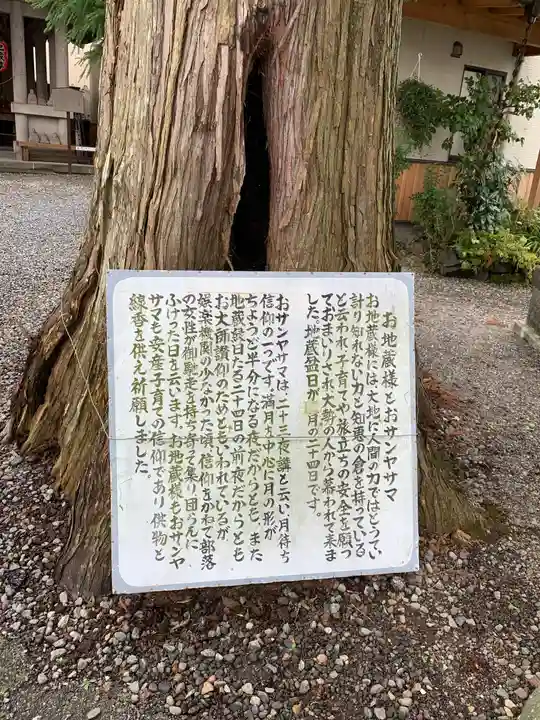 お地蔵様とおサンヤサマ
お地蔵様には、大地に人間の力ではとうてい
計り知れない力と知恵の倉を持っている
と云われ、子育てや旅立ちの安全を願っ
ておまいりされ大勢の人から慕われて来ま
した。地蔵盆日が 月の二十四日です。
おサンヤサマは、二十三夜講と云い、月待ち
信仰の一つです。満月を中心に月の形が
ちょうど半分になる夜だからとも、また
地蔵縁日たる二十四日の前夜だからとも
お大師講仰のためともいわれているが、
娯楽機関の少なかった頃、信仰をかねて部落
の女性が御馳走を持ち寄って集り団らんに
ふけった日を云います。お地蔵様もおサンヤ
サマも安産子育ての信仰であり供物と
線香を供え祈願しました。